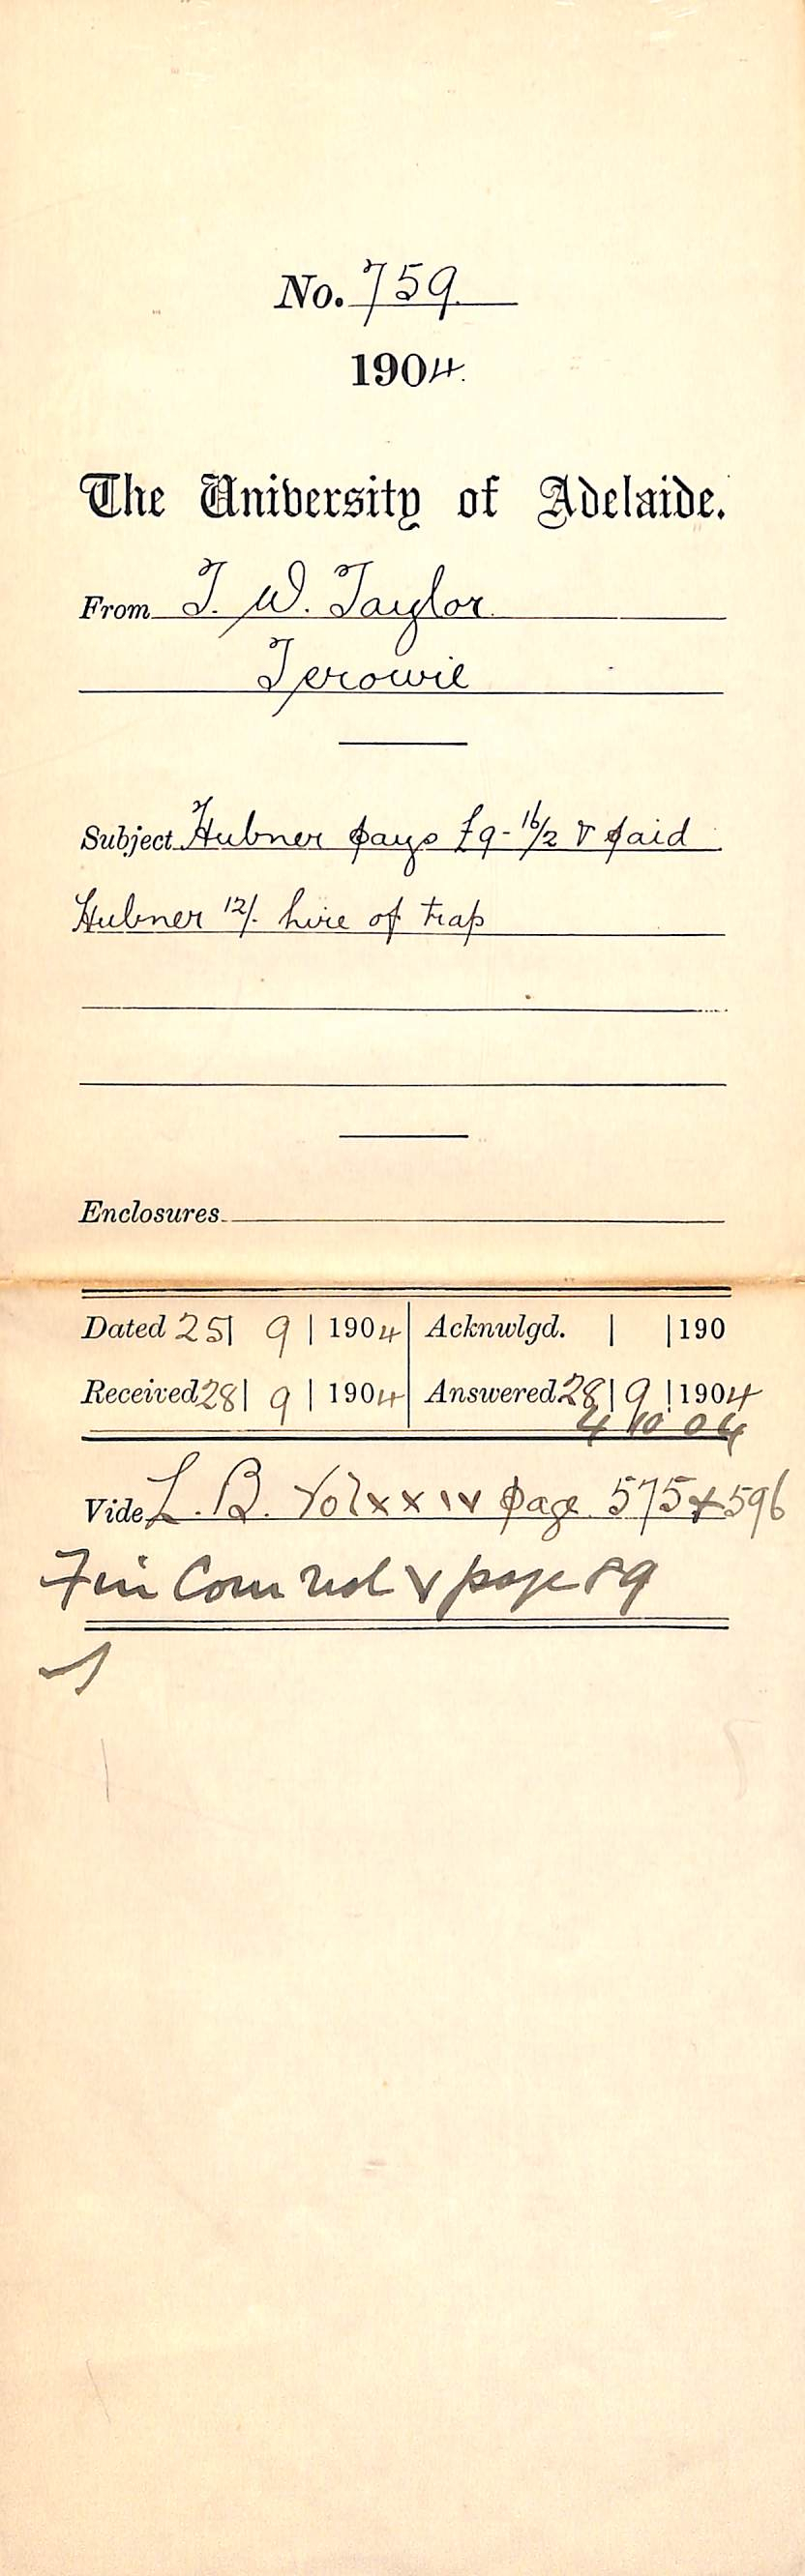 No. 759.
1904.
The University of Adelaide.
From T. W. Taylor.
Terowie
Subject Hubner pays £9-16/2 & paid
Hubner 12/. hire of trap
Enclosures
Dated 25| 9 | 1904 Acknwlgd. | |190
Received 28| 9 | 1904 Answered 28| 9 |1904
4 10 04
Vide L. B. Vol xxiv page 575 & 596
Fin Com vol V page 89